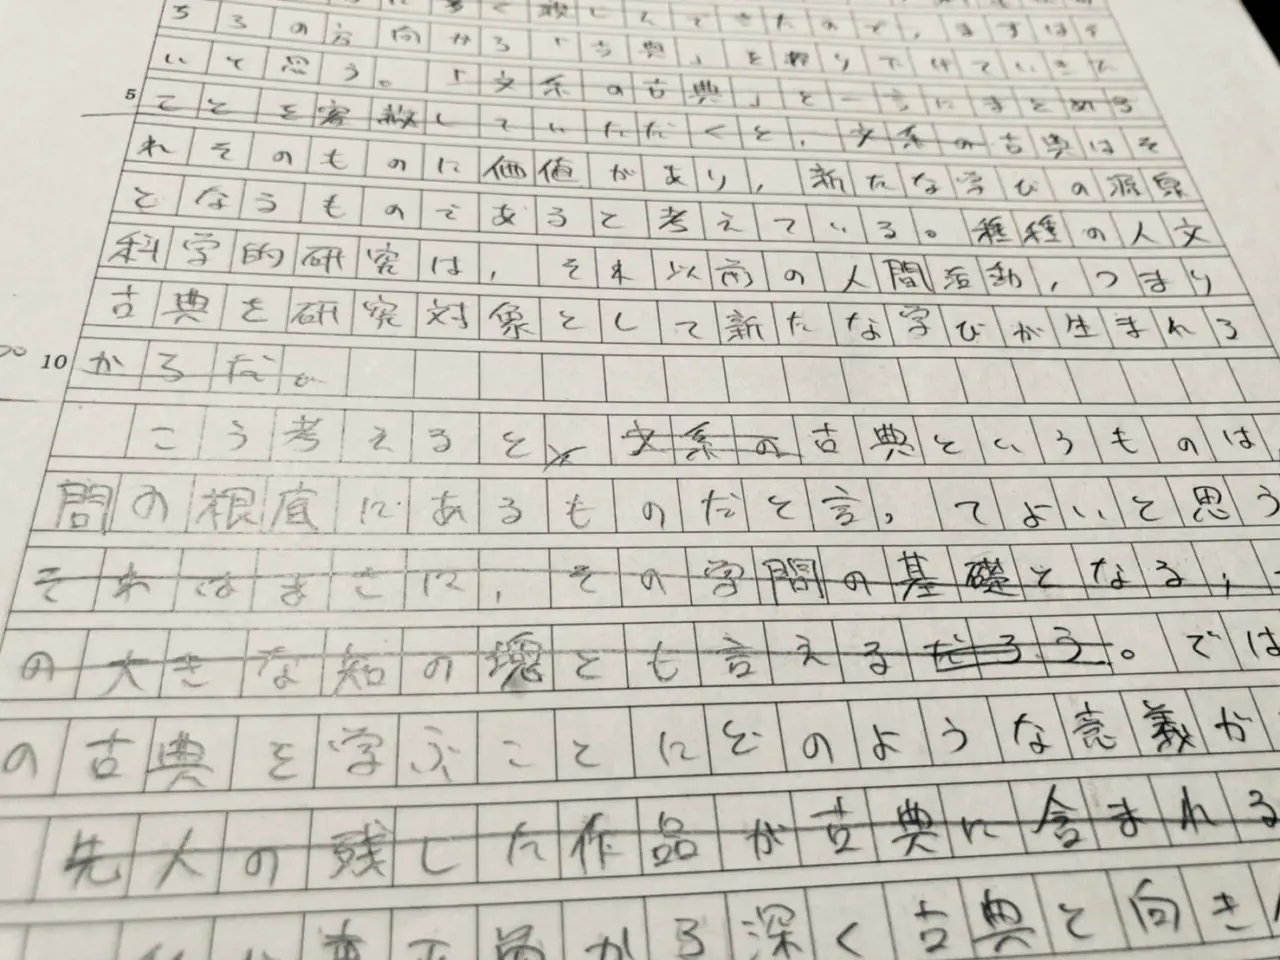 ろの方向から「古典」を掘り下げていきた
いと思う。「文系の古典」と一言にまとめる
5 ことを容赦していただくと、文系の古典はそ
れそのものに価値があり、新たな学びの源泉
となるうものであると考えている。種種の人文
科学的研究は、それ以前の人間活動、つまり
古典を研究対象として新たな学びが生まれる
10 からだ。
こう考えると、文系の古典というものは、
問の根底にあるものだと言ってよいと思う
それはまさに、その学問の基礎となる、
の大きな知の塊とも言えるだろう。では
の古典を学ぶことにどのような意義が
先人の残した作品が古典に含まれる
から深く古典と向き